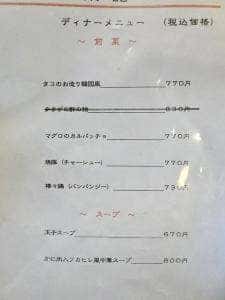 ディナーメニュー （税込価格）
～ 前菜 ～
タコのお造り韓国風 770円
830円
マグロのカルパッチョ 770円
焼豚（チャーシュー） 770円
棒々鶏（バンバンジー） 790円
～ スープ ～
玉子スープ 670円
かに肉入りふかひれ風中華スープ 800円